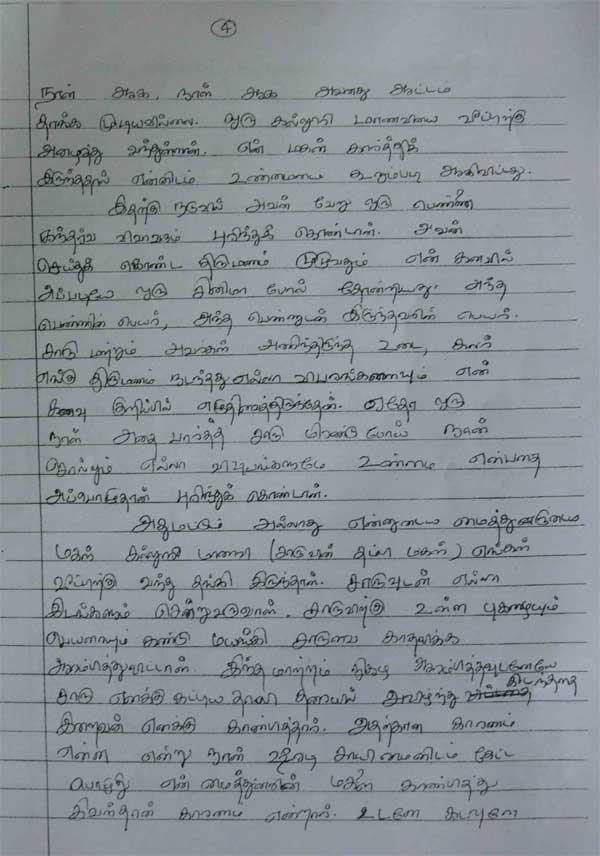 4
நாள் ஆக, நாள் ஆக அவனது ஆட்டம்
தாங்க முடியவில்லை. ஒரு கல்லூரி மாணவியை வீட்டிற்கு
அழைத்து வந்துள்ளான். என் மகன் கார்த்திக்
இருந்ததால் என்னிடம் உண்மையை கூறும்படி ஆகிவிட்டது.
இதற்கு நடுவில் அவன் வேறு ஒரு பெண்ணை
கந்தர்வ விவாகம் புரிந்துக் கொண்டான். அவன்
செய்துக் கொண்ட திருமணம் முழுவதும் என் கனவில்
அப்படியே ஒரு சினிமா போல் தோன்றியது. அந்த
பெண்ணின் பெயர், அந்த பெண்ணுடன் இருந்தவரின் பெயர்.
சாரு மற்றும் அவர்கள் அணிந்திருந்த உடை, கலர்
எங்கு திருமணம் நடந்தது எல்லா விபரங்களையும் என்
கனவு குறிப்பில் எழுதிவைத்திருந்தேன். ஏதோ ஒரு
நாள் அதை பார்த்த சாரு மிரண்டு போய் நான்
சொல்லும் எல்லா விஷயங்களுமே உண்மை என்பதை
அப்போதுதான் புரிந்துக் கொண்டான்.
அதுமட்டும் அல்லாது என்னுடைய மைத்துனருடைய
மகள் கல்லூரி மாணவி (சாருவின் தம்பி மகள்) எங்கள்
வீட்டிற்கு வந்து தங்கி இருந்தாள். சாருவுடன் எல்லா
இடங்களும் சென்றுவருவாள். சாருவிற்கு உள்ள புகழையும்
பெயரையும் கண்டு மயங்கி சாருவை காதலிக்க
ஆரம்பித்துவிட்டாள். இந்த மாற்றம் நிகழ ஆரம்பித்தவுடனேயே
சாரு எனக்கு கட்டிய தாலி தனியாய் அவிழ்ந்து கிடந்ததை
இறைவன் எனக்கு காண்பித்தார். அதற்கான காரணம்
என்ன என்று நான் ஷிரடி சாயிமைனிடம் கேட்ட
பொழுது என் மைத்துனரின் மகளை காண்பித்து
இவள்தான் காரணம் என்றார். உடனே கடவுளே